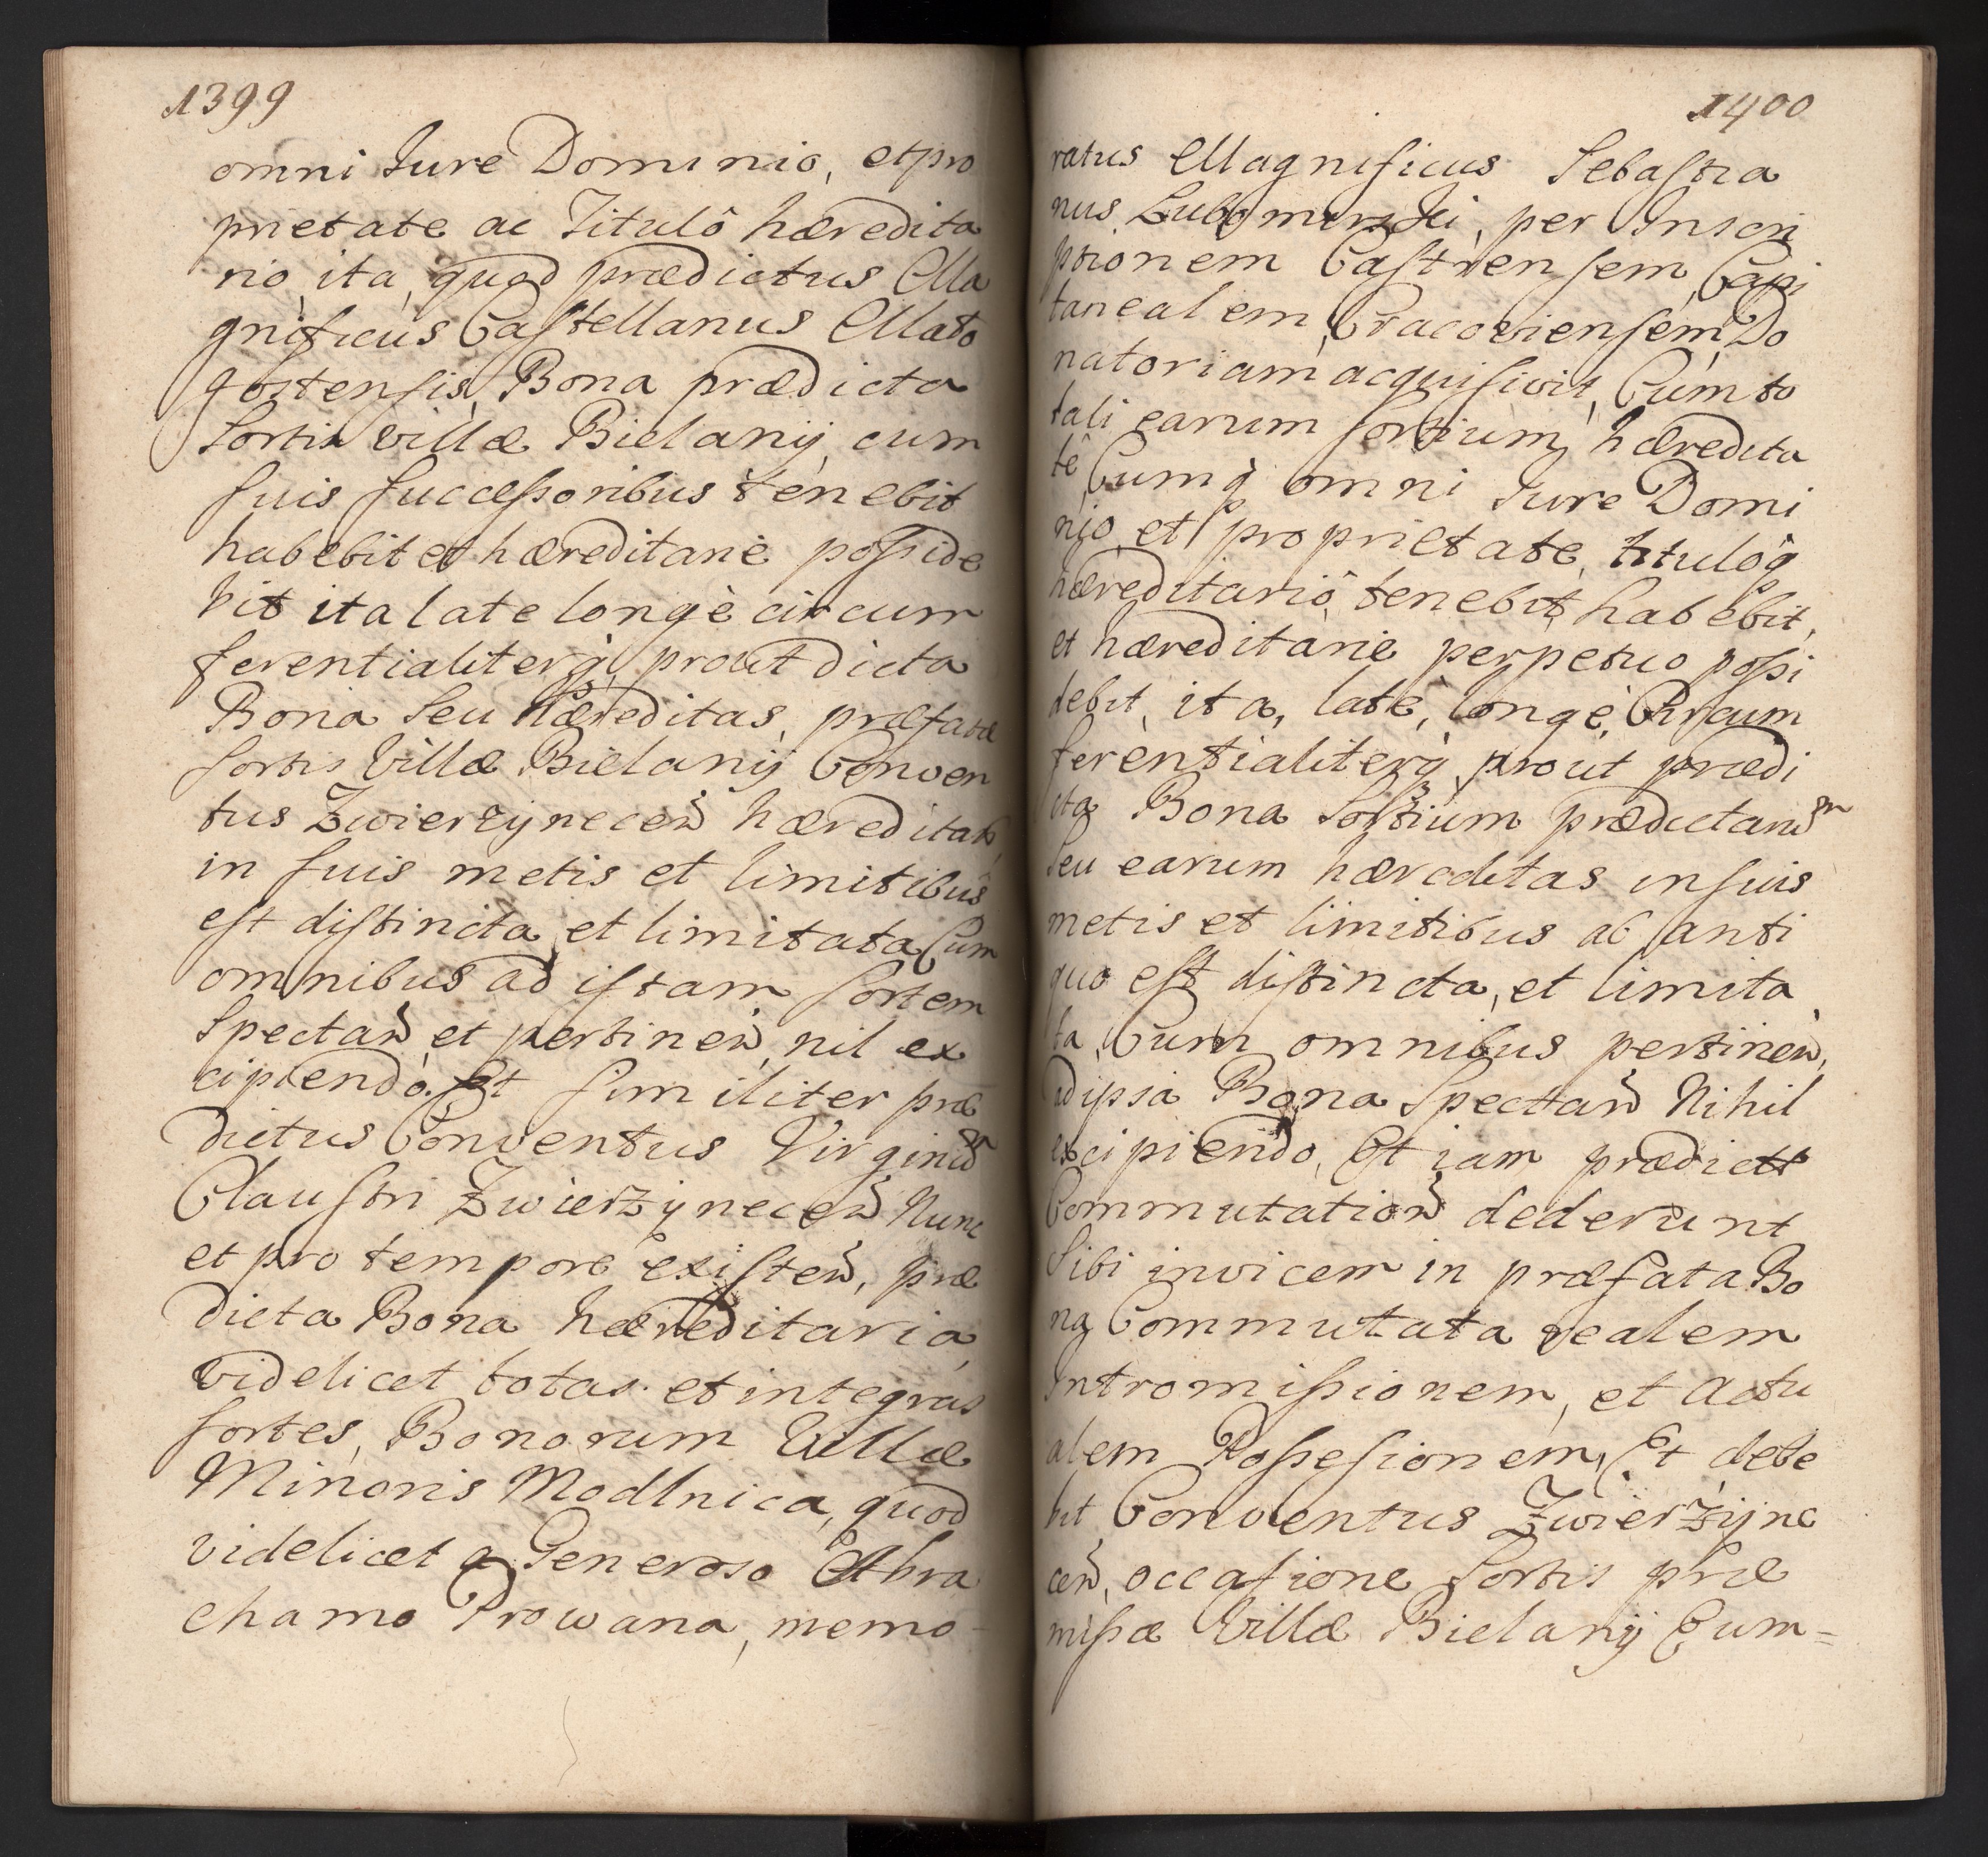 1399
omni Jure Dominio, et pro
prietate ac Titulô hæredita
rio, ita, quod prædictus Ma
gnificus Castellanus Mało
gostensis, Bona prædicta
Sortis villæ Bielanÿ, cum
suis successoribus tenebit
habebit et hæreditariè posside
bit ita late longè circum
ferentialiterq̀, prout dicta
Bona Seu Hæreditas, præfatæ
sortis Villæ Bielanÿ Conven
tus Zwierzÿnecen̄ hæreditar̄,
in suis metis et limitibus
est distincta, et limitata Cum
omnibus ad istam sortem
Spectan̄ et pertinen̄, nil ex
cipiendo. Et similiter præ
dictus Conventus Virginū
Claustri Zwierzÿnecen̄ Nunc
et pro tempore existen̄, præ
dicta Bona hæreditaria,
videlicet totas et integras
sortes, Bonorum Villæ
Minoris Modlnica, quod
videlicet a Generoso Abra
chamo Prowana, memo-
1400
ratus Magnificus Sebastia
nus Lubomirski, per Inscri
ptionem Castrensem, Capi
tanealem, Cracoviensem, Do
natoriam acquisivit, Cum to
tali earum sortium, hæredita
te, Cumq̀ omni Jure Domi
nio, et proprietate, titulôq̀
hæreditariô, tenebit, habebit,
et hæreditariè perpetuo possi
debit, ita, latè, longè, Circum
ferentialiterq̀, prout prædi
cta Bona Sortium prædictarum
Seu earum hæreditas in suis
metis et limitibus ab anti
quo est distincta, et limita
ta, Cum omnibus pertinen̄,
ad ipsa Bona Spectan̄ Nihil
excipiendo, Et iam prædicti
Commutation̄ dederunt
Sibi invicem in præfata Bo
na Commutata realem
Intromissionem, et Actu
alem Possesionem, Et debe
bit Conventus Zwierzÿne
cen̄, occasione Sortis præ
missæ Villæ Bielanÿ Cum=